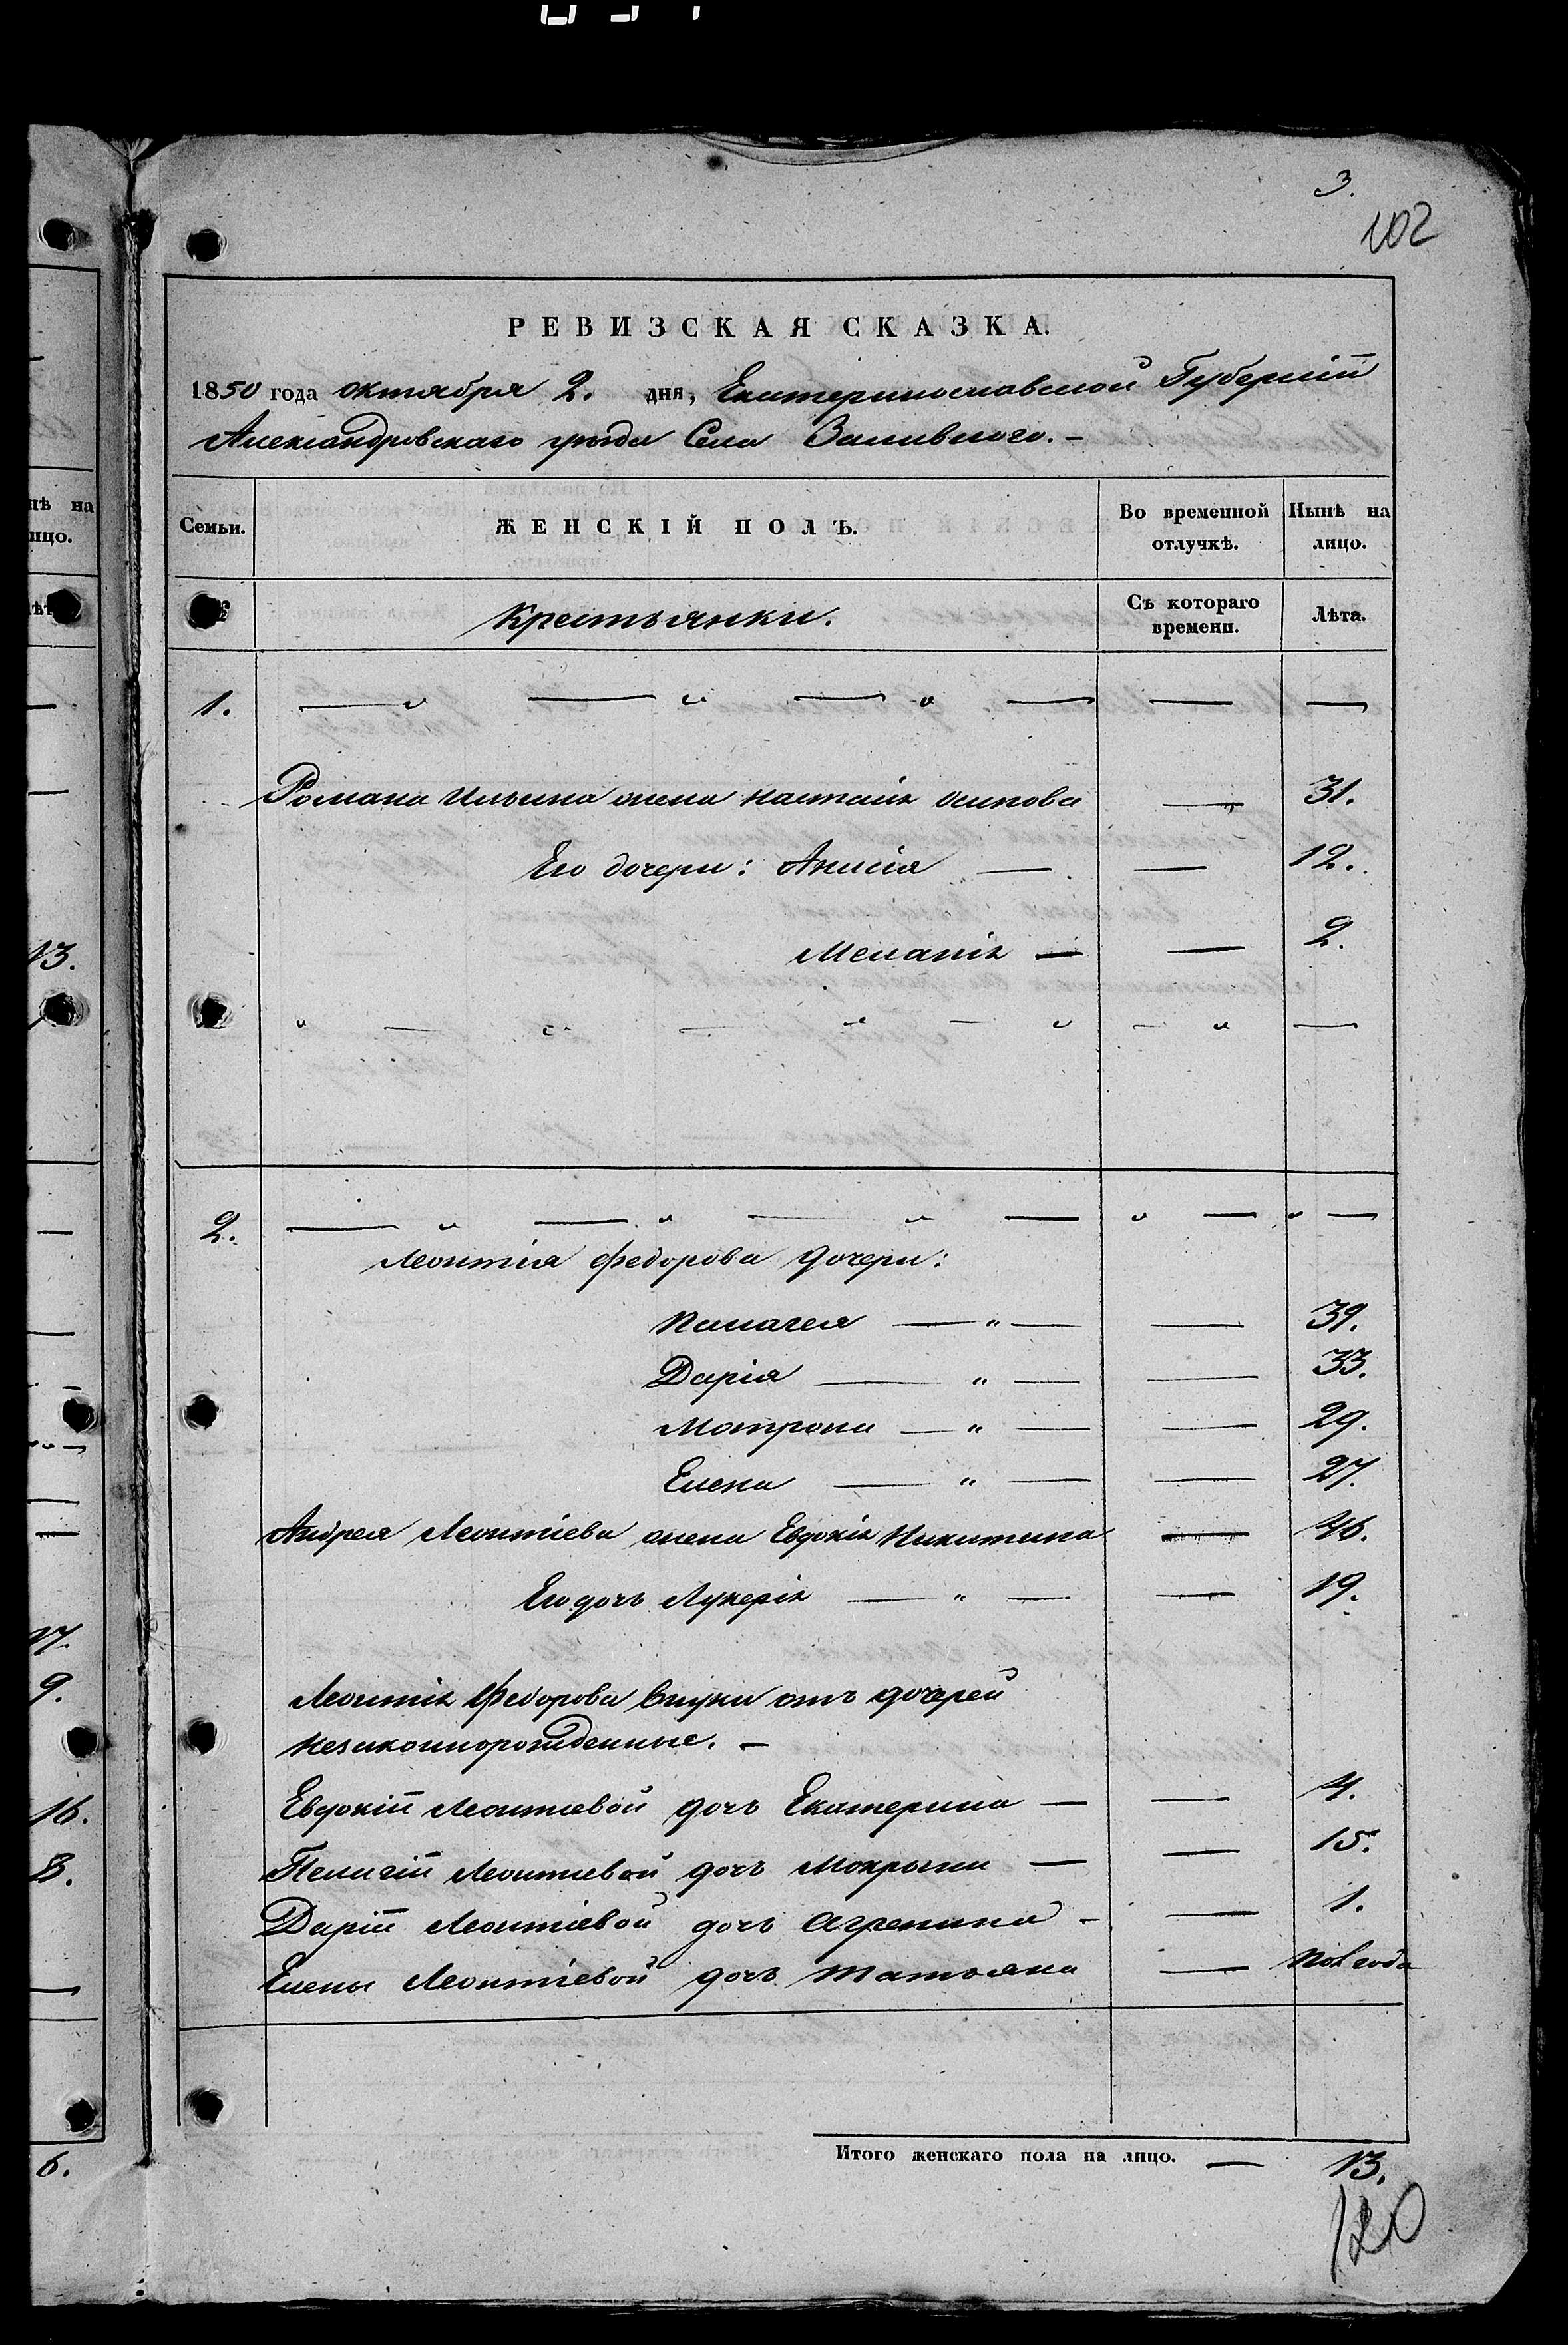 3.
102
РЕВИЗСКАЯ СКАЗКА.
1850 года октября 2. дня, Екатеринославской Губерніи
Александровскаго уѣзда Села Заливного. -
Семьи. ЖЕНСКІЙ ПОЛЪ. Во временной отлучкѣ. Нынѣ на лицо.
Крестьянки. Съ котораго времени. Лѣта.
1. — " — " — " — — —
Романа Ильина жена Настасія Осипова — " 31.
Его дочери: Анисія — — 12.
Меланія — — 2.
" — " — " — " — " —
2. — " — " — " — " — " —
Леонтія Федорова дочери:
Палагея — " — — 39.
Дарія — " — — 33.
Матрона — " — — 29.
Елена — " — — 27.
Андрея Леонтіева жена Евдокія Никитина — 46.
Его дочь Лукерія — " — — 19.
Леонтія Федорова внуки отъ дочерей
незаконнорожденные. -
Евдокіи Леонтіевой дочь Екатерина — — 4.
Пелагіи Леонтіевой дочь Мокрына — — 15.
Даріи Леонтіевой дочь Агрепина - — 1.
Елены Леонтіевой дочь Татьяна — Полгода
Итого женскаго пола на лицо. — 13.
120
нѣ на
ицо.
13.
17.
9.
16.
8.
6.